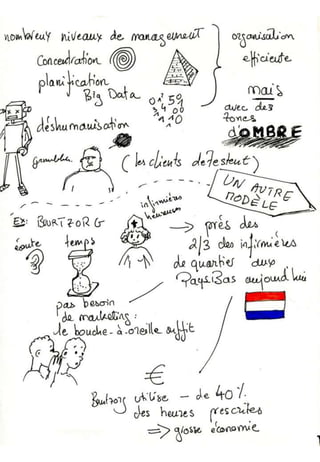 nombreux niveaux de management
organisation
efficiente
Concentration
planification
Big Data
0 1 59
3 4 00
1 1 0
mais
avec des
zones
d'OMBRE
déshumanisation
(les clients détestent)
UN AUTRE
MODÈLE
infirmières
heureuses
Ex: BUURTZORG
écoute
temps
→ près des
2/3 des infirmières
de quartier aux
Pays.Bas aujourd'hui
pas besoin
de marketing :
le bouche-à-oreille suffit
€
Buurtzorg utilise – de 40%
des heures prescrites
⇒ grosse économie